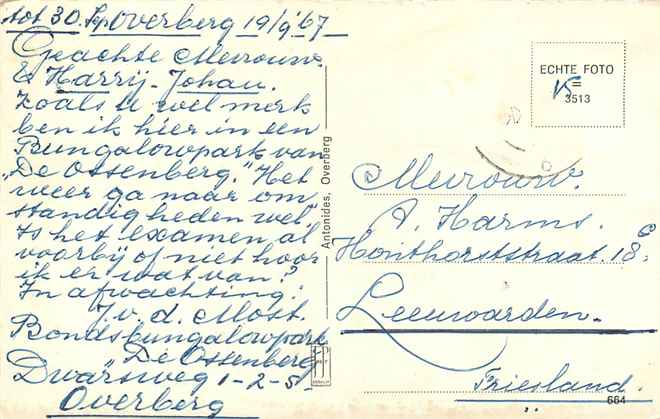 tot 30. Sep. Overberg 19/9 '67
Geachte Mevrouw.
& Harrij-Johan.
Zoals U wel merk
ben ik hier in een
Bungalowpark van
"De Ossenberg." Het
weer ga naar om
standig heden wel.
Is het examen al
voorbij of niet hoor
ik er wat van?
In afwachting:
J. v. d. Most.
Bondsbungalowpark
"De Ossenberg
Dwarsweg 1-2-5.
Overberg
Antonides, Overberg
ECHTE FOTO
=
3513
Mevrouw.
A. Harms.
Honthorststraat. 18 c
Leeuwarden.
Friesland.
664